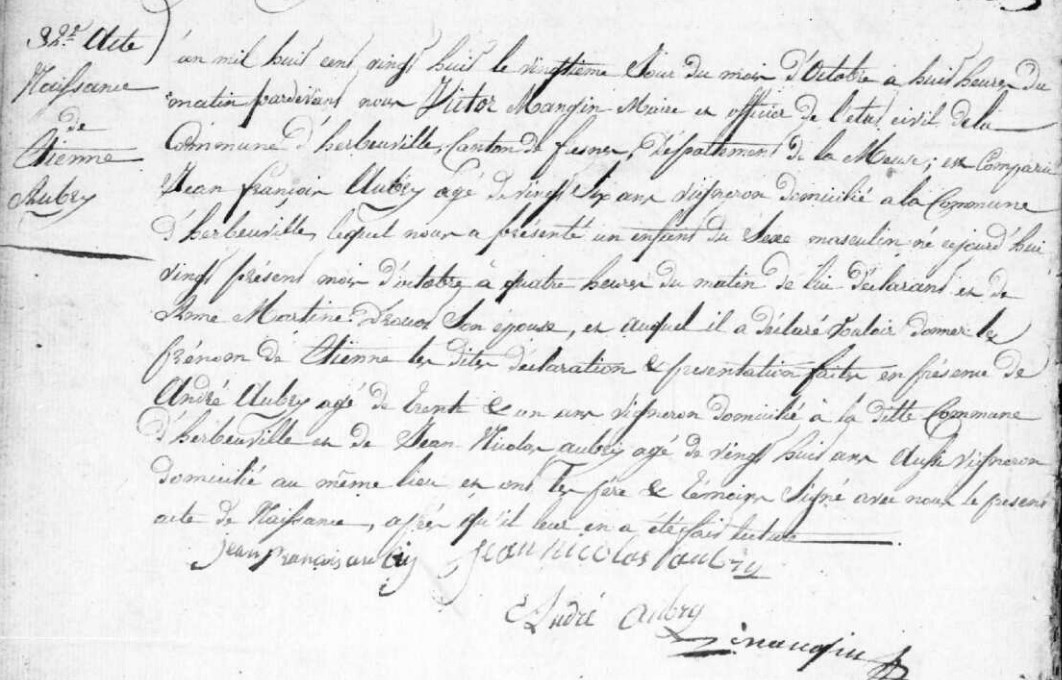 32e Acte
Naissance
de
Etienne
Aubry
an mil huit cent vingt huit le vingtieme Jour du mois d'Octobre à huit heures du
matin pardevant nous Victor Mangin Maire et officier de l'etat civil de la
Commune d'herbeuville, Canton de fresnes, Département de la Meuse; est Comparu
Jean françois Aubry agé de vingt Six ans vigneron domicilié a la Commune
d'herbeuville, lequel nous a présenté un enfant du Sexe masculin né cejourd'hui
vingt présent mois d'octobre à quatre heures du matin de lui déclarant et de
Anne Martine Drouot Son épouse, et auquel il a déclaré vouloir donner le
prénom de Etienne les dites déclaration & présentation faites en présence de
André Aubry agé de trente & un ans vigneron domicilié à la ditte Commune
d'herbeuville et de Jean Nicolas aubry agé de vingt huit ans Aussi vigneron
domicilié au même lieu et ont les père & témoins Signé avec nous le présent
acte de Naissance, après qu'il leur en a été fait lecture
jean françois aubry jean nicolas aubry
André Aubry
mangin